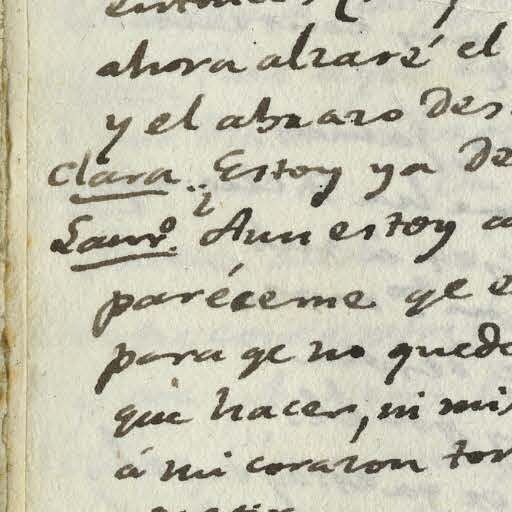 ahora alzaré el
y el abrazo des
Clara. Estoy ya de
Laurº. ¿Aun estoy a
paréceme qe e
para qe no quede
que hacer, ni mis
á mi corazon tor